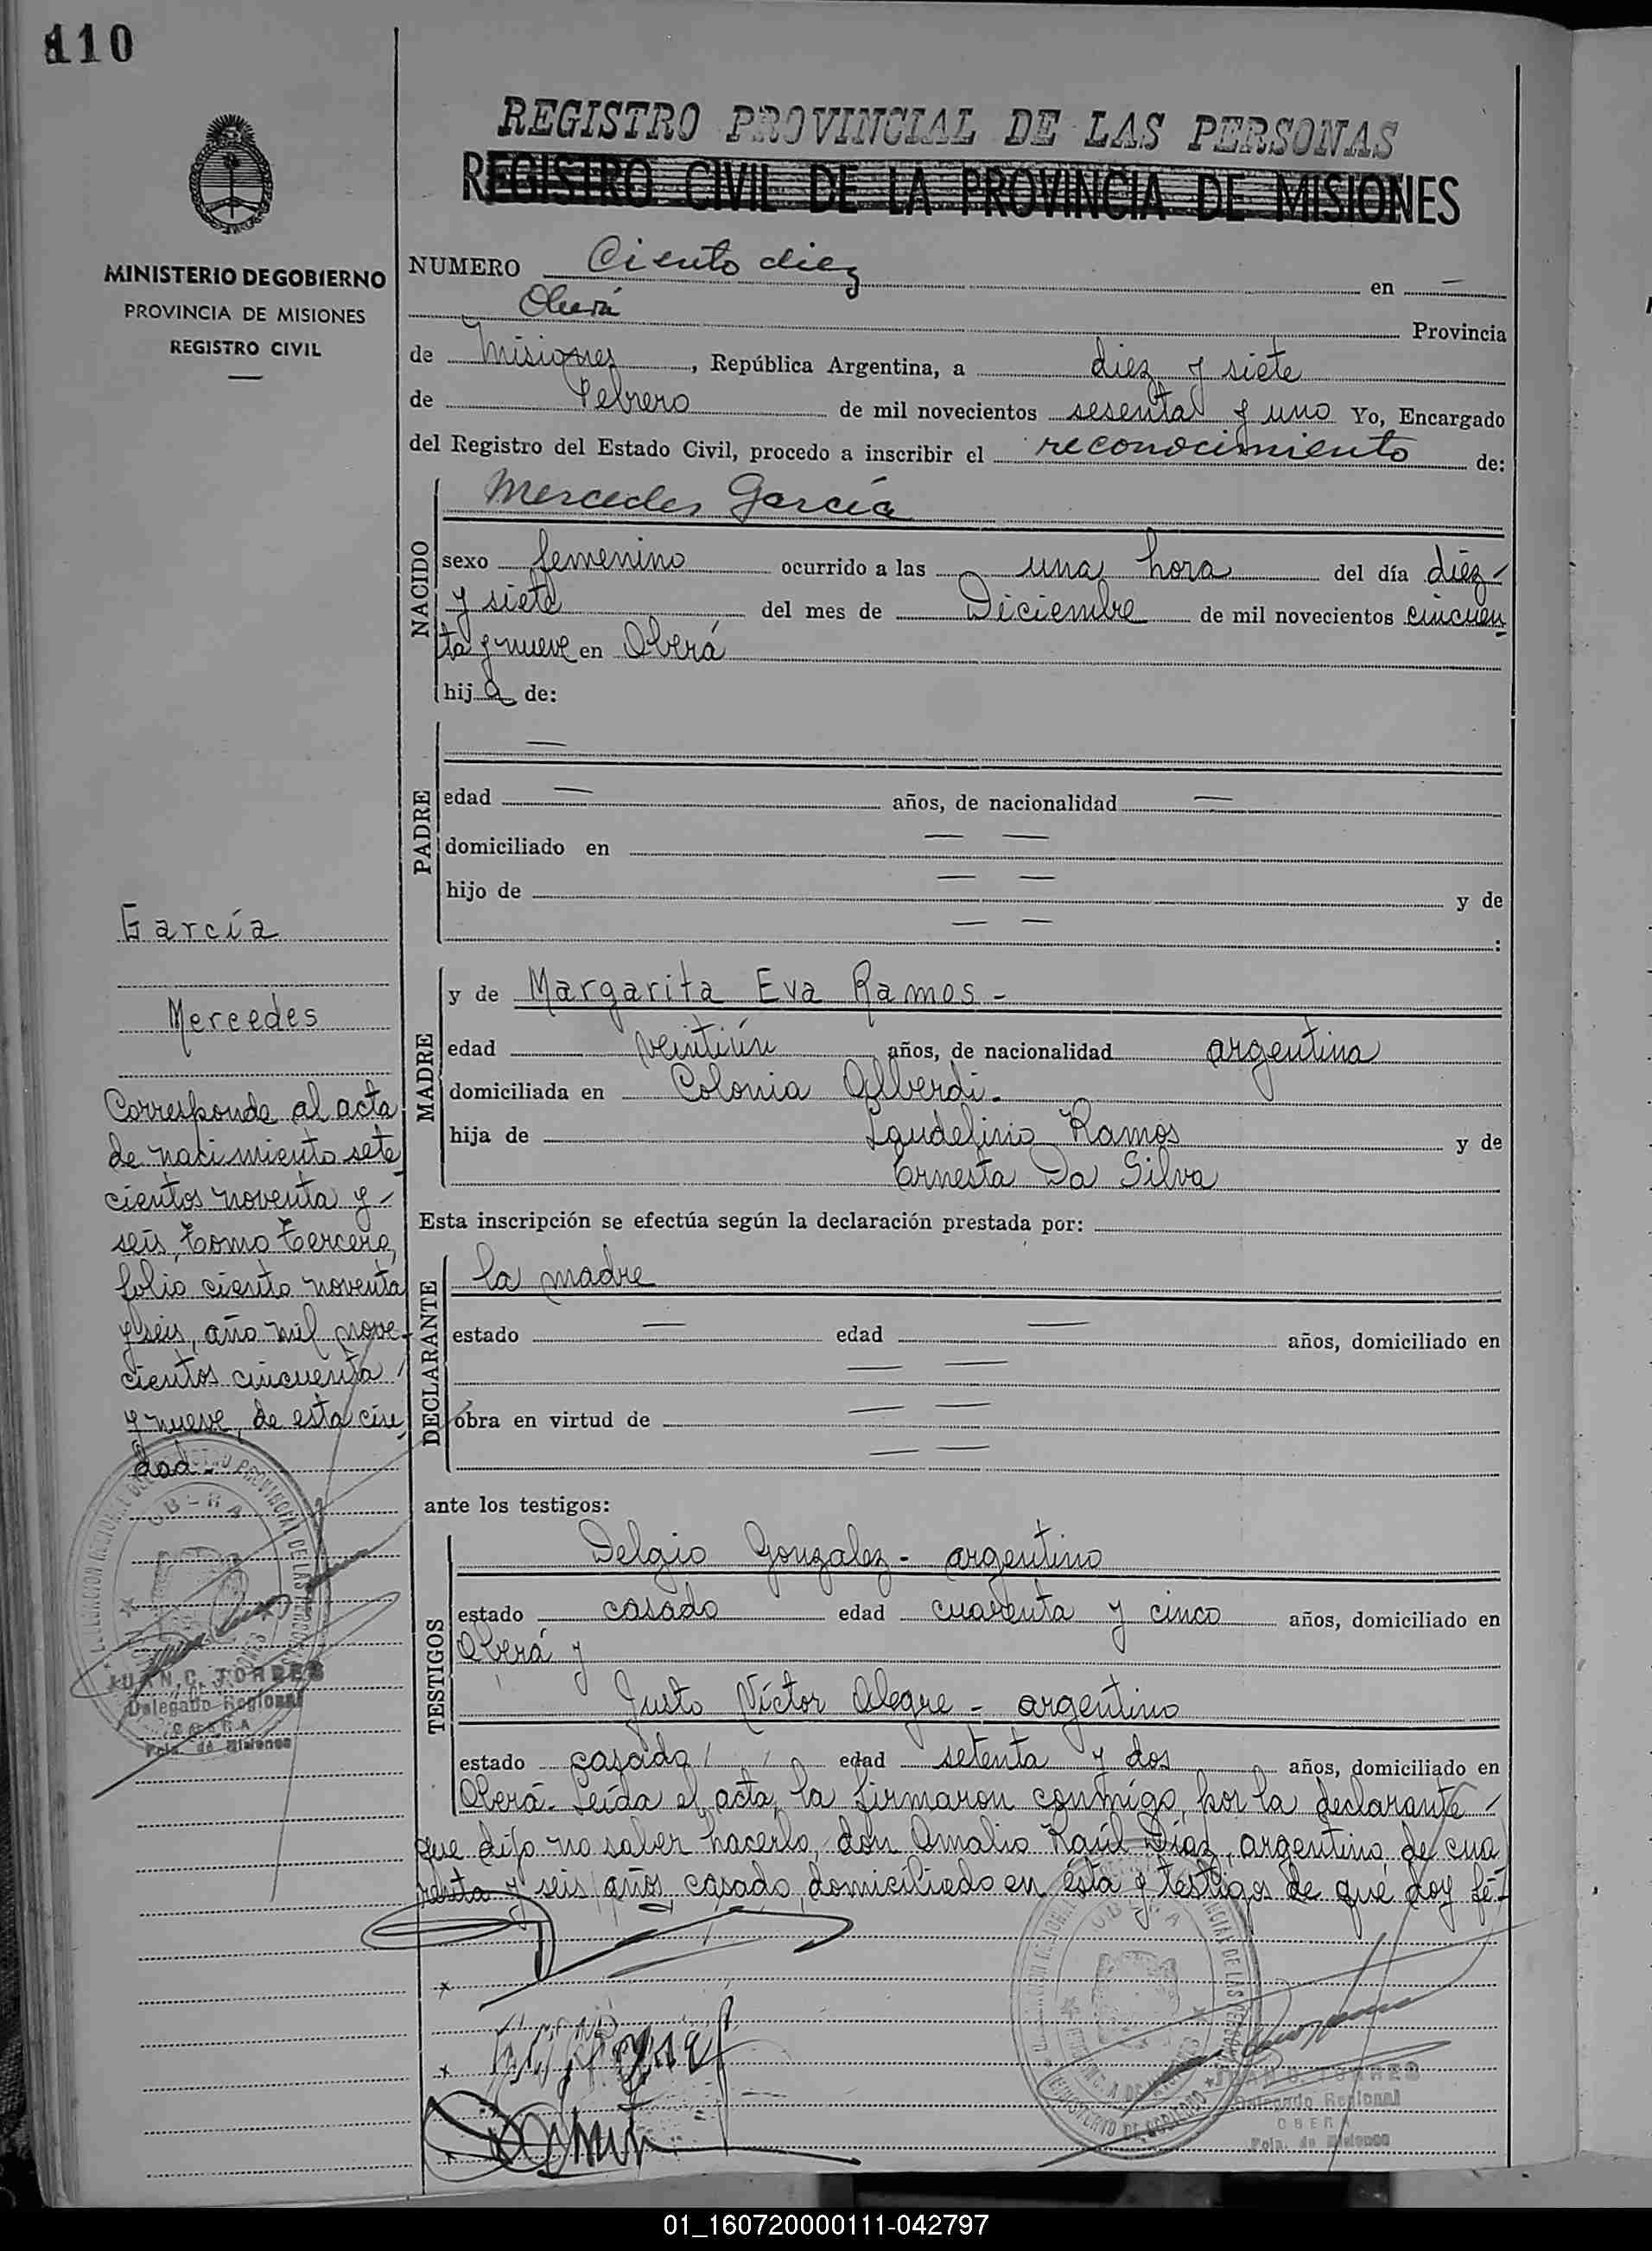 110
REGISTRO PROVINCIAL DE LAS PERSONAS
REGISTRO CIVIL DE LA PROVINCIA DE MISIONES
MINISTERIO DE GOBIERNO
PROVINCIA DE MISIONES
REGISTRO CIVIL
NUMERO Ciento diez en —
Oberá Provincia
de Misiones, República Argentina, a diez y siete
de Febrero de mil novecientos sesenta y uno Yo, Encargado
del Registro del Estado Civil, procedo a inscribir el reconocimiento de:
NACIDO
Mercedes García
sexo femenino ocurrido a las una hora del día diez
y siete del mes de Diciembre de mil novecientos cincuen
ta y nueve en Oberá
hija de:
PADRE
—
edad — años, de nacionalidad —
domiciliado en — —
hijo de — — y de
— — :
MADRE
y de Margarita Eva Ramos -
edad veintiún años, de nacionalidad argentina
domiciliada en Colonia Alberdi.
hija de Laudelino Ramos y de
Ernesta Da Silva
Esta inscripción se efectúa según la declaración prestada por:
DECLARANTE
la madre
estado — edad — años, domiciliado en
— —
obra en virtud de — —
— —
ante los testigos:
TESTIGOS
Delgio Gonzalez - argentino
estado casado edad cuarenta y cinco años, domiciliado en
Oberá y
Justo Víctor Alegre - argentino
estado casado edad setenta y dos años, domiciliado en
Oberá. Leída el acta, la firmaron conmigo, por la declarante
que dijo no saber hacerlo, don Amalio Raúl Díaz, argentino, de cua
renta y seis años, casado, domiciliado en ésta y testigos de que doy fé-
García
Mercedes
Corresponde al acta
de nacimiento sete
cientos noventa y
seis, tomo tercero,
folio ciento noventa
y seis, año mil nove-
cientos cincuenta
y nueve, de esta ciu
dad.-
OBERA
JUAN C. TORRES
Delegado Regional
OBERA
Pcia. de Misiones
OBERA
JUAN C. TORRES
Delegado Regional
OBERA
Pcia. de Misiones
01_160720000111-042797